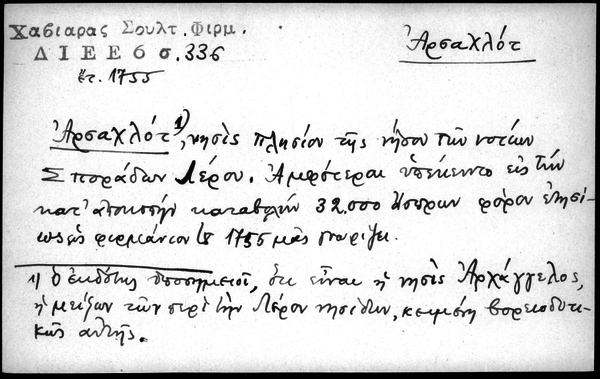 Χαβιαρας Σουλτ. Φιρμ.
Ἀρσαχλότ
Δ Ι Ε Ε 6 σ. 336
ἔτ. 1755
Ἀρσαχλότ 1), νησὶς πλησίον τῆς νήσου τῶν νοτίων
Σποράδων Λέρου. Ἀμφότεραι ὑπέκειντο εἰς τὴν
κατ' ἀποκοπὴν καταβολὴν 32.500 ἄσπρων φόρον ἐτησί-
ως ὡς φιρμάνιον 1755 μᾶς γνωρίζει.
1) ὁ ἐκδότης ὑποσημειοῖ, ὅτι εἶναι ἡ νησὶς Ἀρχάγγελος,
ἡ μείζων τῶν περὶ τὴν Λέρον νησίδων, κειμένη βορειοδυτι-
κῶς αὐτῆς.